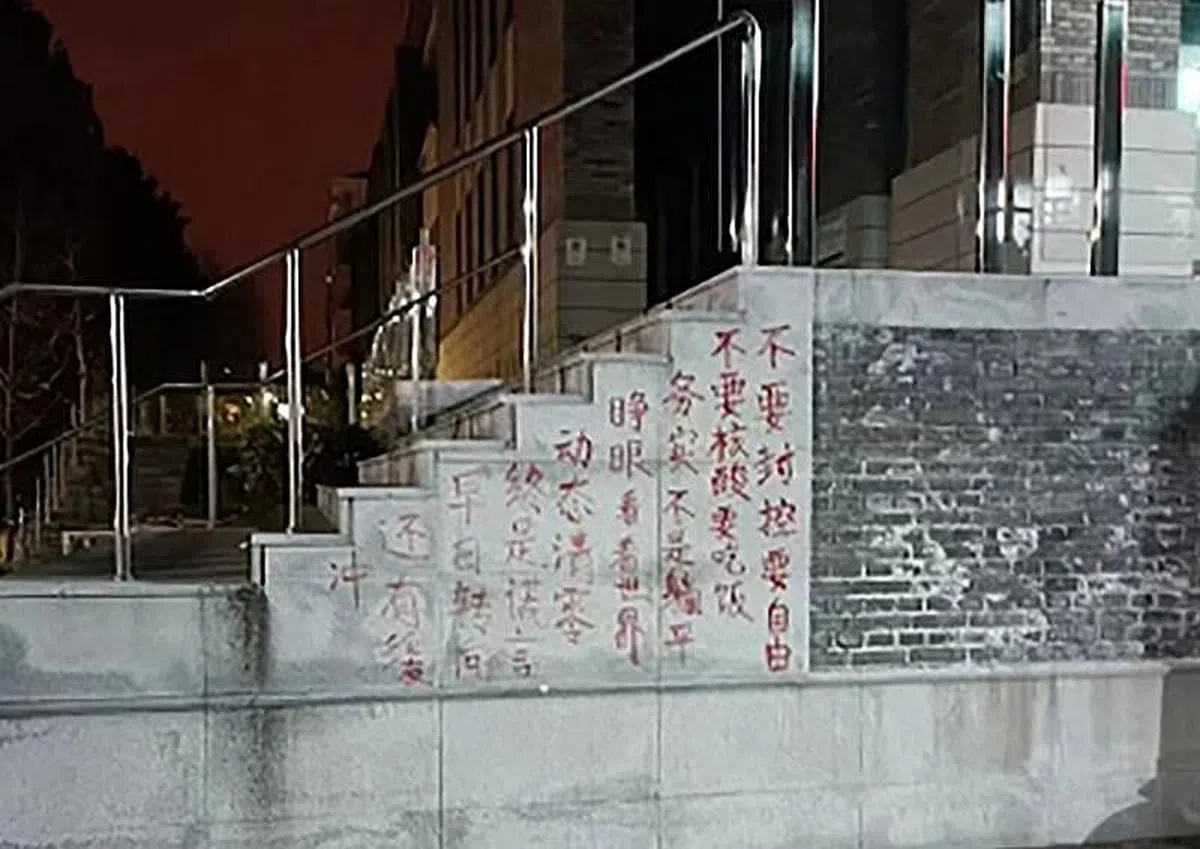 不要封控要自由
不要核酸要吃饭
务实不是躺平
睁眼看看世界
动态清零
终是谎言
早日转向
还有缓
冲